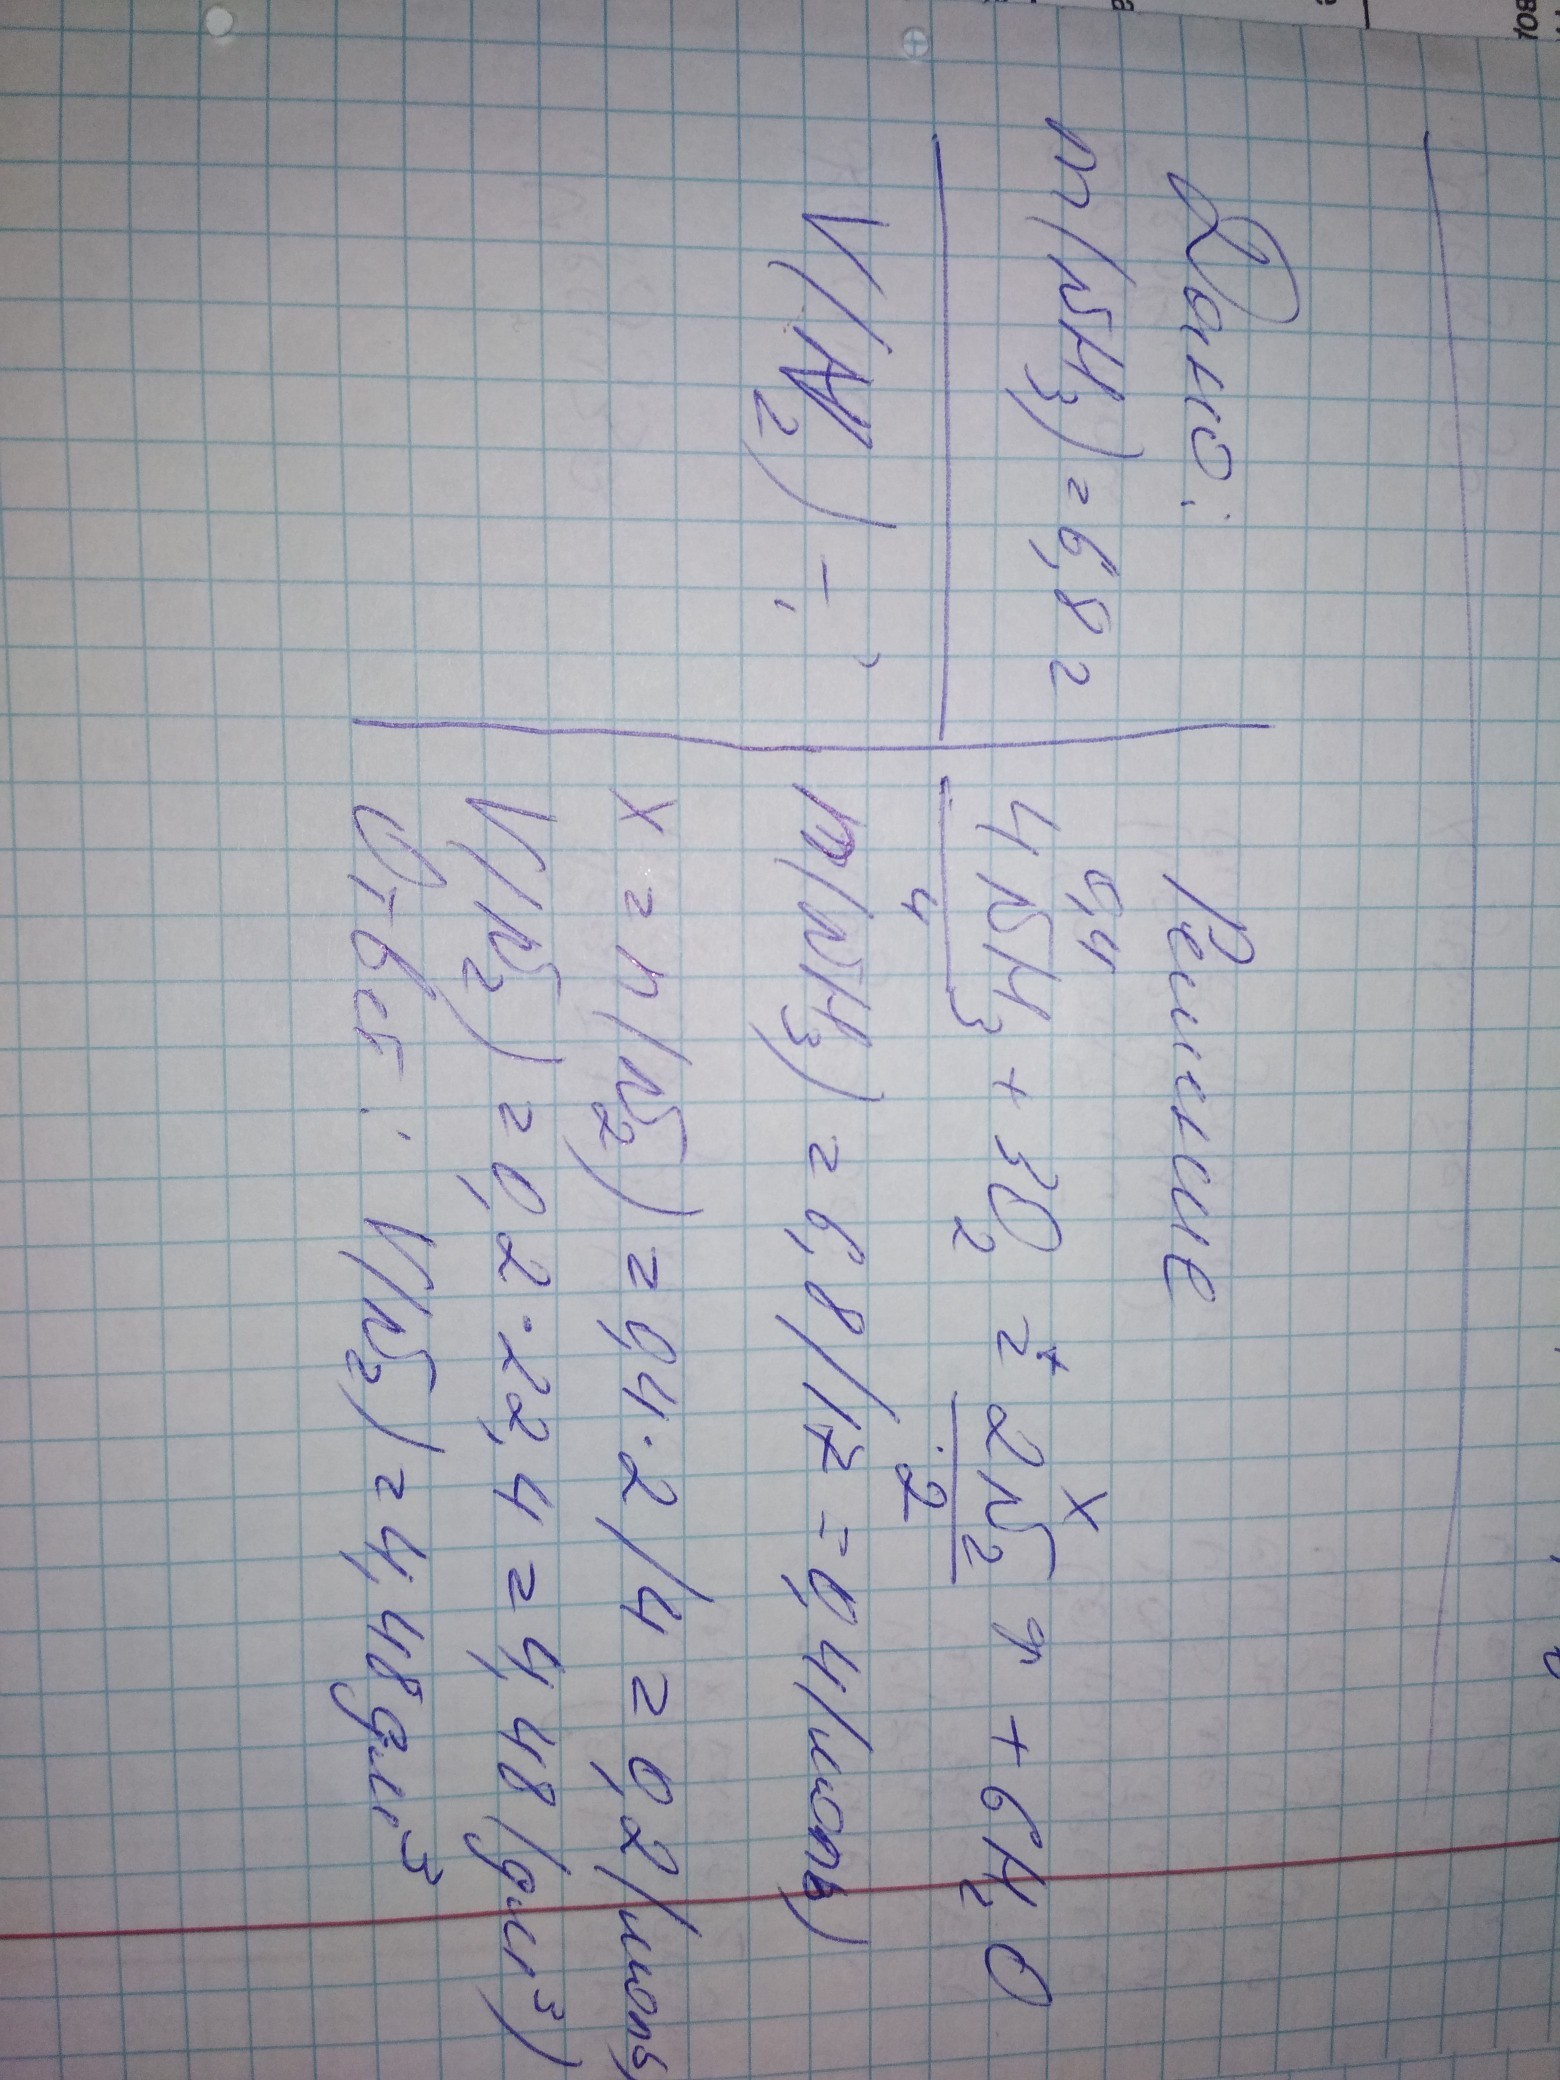 Дано:
m(NH3)=6,8 г
V(N2) - ?
Решение
0,4 x
4NH3 + 3O2 = 2N2 + 6H2O
4 2
n(NH3) = 6,8/17 = 0,4(моль)
x = n(N2) = 0,4·2/4 = 0,2(моль)
V(N2) = 0,2·22,4 = 4,48(дм³)
Ответ: V(N2) = 4,48дм³